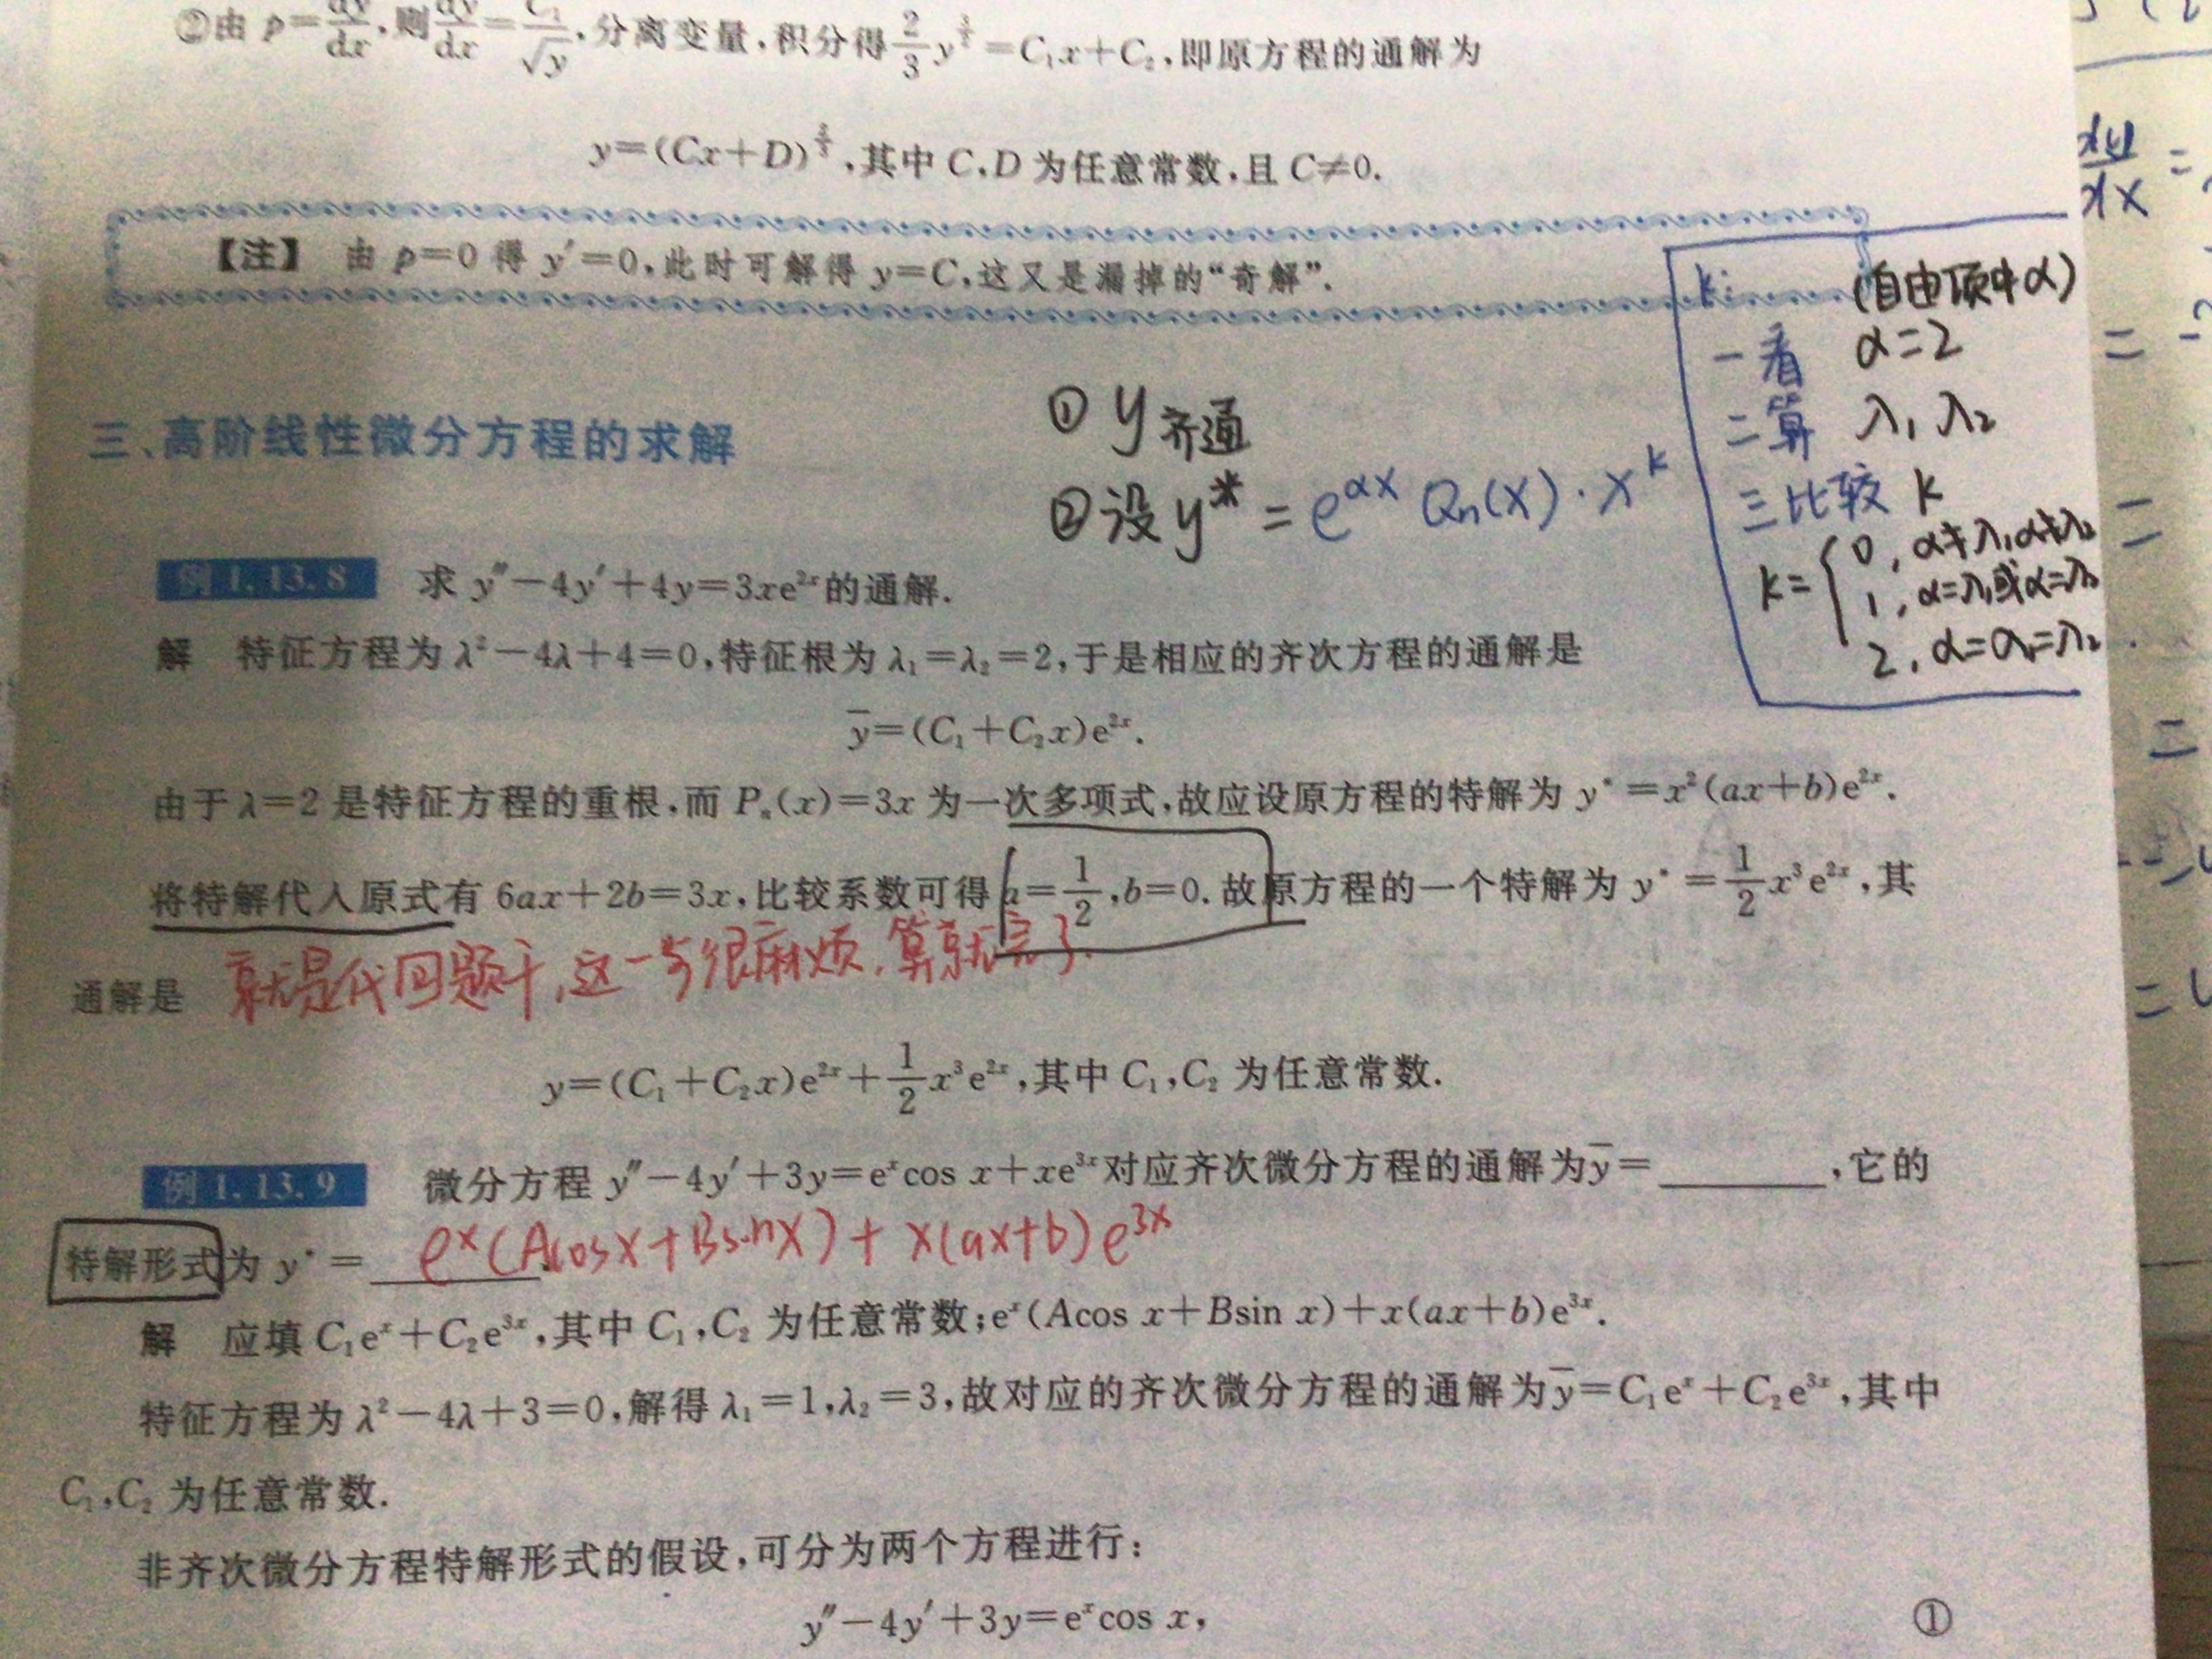 ②由 p=dy/dx,则dy/dx=C₁/√y,分离变量,积分得 2/3 y^(3/2)=C₁x+C₂,即原方程的通解为
y=(Cx+D)^(2/3),其中 C,D 为任意常数,且 C≠0.
【注】 由 p=0 得 y′=0,此时可解得 y=C,这又是漏掉的“奇解”.
k: (自由项中α)
一看 α=2
二算 λ₁ λ₂
三比较 k
k={0, α≠λ₁,α≠λ₂
1, α=λ₁或α=λ₂
2, α=α₁=λ₂
三、高阶线性微分方程的求解
① y齐通
②设 y* = e^(αx) Qn(x)·x^k
例 1.13.8 求 y″−4y′+4y=3xe²ˣ的通解.
解 特征方程为 λ²−4λ+4=0,特征根为 λ₁=λ₂=2,于是相应的齐次方程的通解是
y̅=(C₁+C₂x)e²ˣ.
由于 λ=2 是特征方程的重根,而 Pₙ(x)=3x 为一次多项式,故应设原方程的特解为 y*=x²(ax+b)e²ˣ.
将特解代入原式有 6ax+2b=3x,比较系数可得 a=1/2,b=0. 故原方程的一个特解为 y*=1/2 x³e²ˣ,其
就是代回题干,这一步很麻烦,算就完了.
通解是
y=(C₁+C₂x)e²ˣ+1/2 x³e²ˣ,其中 C₁,C₂ 为任意常数.
例 1.13.9 微分方程 y″−4y′+3y=eˣcos x+xe³ˣ对应齐次微分方程的通解为y̅=______,它的
特解形式为 y*= eˣ(Acosx+Bsinx)+x(ax+b)e³ˣ
解 应填 C₁eˣ+C₂e³ˣ,其中 C₁,C₂ 为任意常数;eˣ(Acos x+Bsin x)+x(ax+b)e³ˣ.
特征方程为 λ²−4λ+3=0,解得 λ₁=1,λ₂=3,故对应的齐次微分方程的通解为y̅=C₁eˣ+C₂e³ˣ,其中
C₁,C₂ 为任意常数.
非齐次微分方程特解形式的假设,可分为两个方程进行:
y″−4y′+3y=eˣcos x, ①